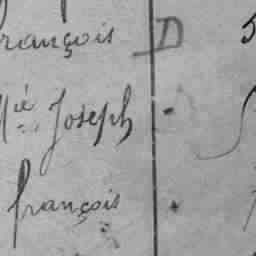 rançois D 5
Mié Joseph
françois